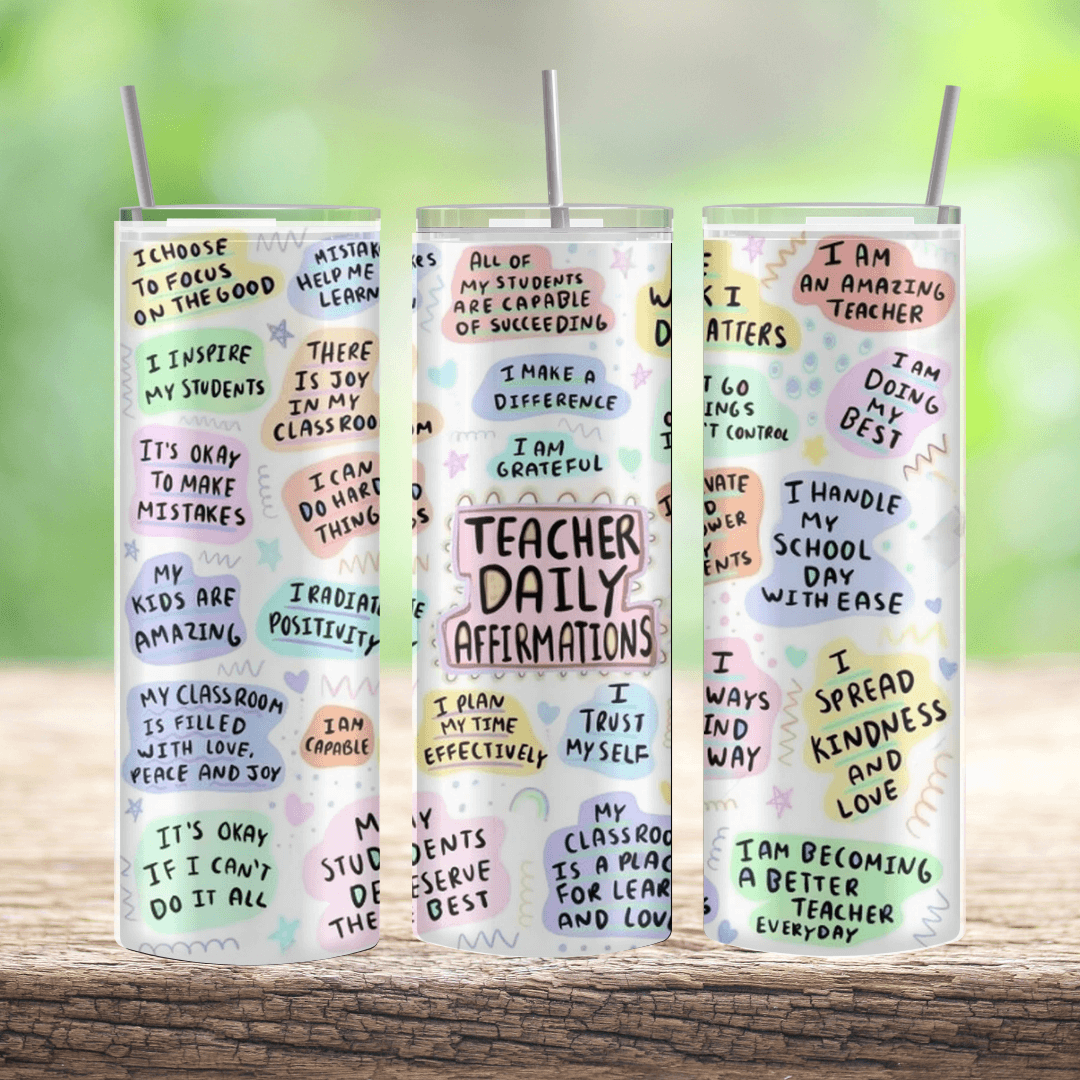 I CHOOSE
TO FOCUS
ON THE GOOD
HELP ME
LEARN
I INSPIRE
MY STUDENTS
THERE
IS JOY
IN MY
IT'S OKAY
TO MAKE
MISTAKES
I CAN
DO HARD
MY
KIDS ARE
AMAZING
POSITIVITY
MY CLASSROOM
IS FILLED
WITH LOVE,
PEACE AND JOY
I AM
CAPABLE
IT'S OKAY
IF I CAN'T
DO IT ALL
ALL OF
MY STUDENTS
ARE CAPABLE
OF SUCCEEDING
I MAKE A
DIFFERENCE
I AM
GRATEFUL
TEACHER
DAILY
AFFIRMATIONS
I PLAN
MY TIME
EFFECTIVELY
I
TRUST
MY SELF
BEST
MY
IS A
FOR
AND
I
I AM
AN AMAZING
TEACHER
GO
CONTROL
I AM
DOING
MY
BEST
I HANDLE
MY
SCHOOL
DAY
WITH EASE
I
WAY
I
SPREAD
KINDNESS
AND
LOVE
I AM BECOMING
A BETTER
TEACHER
EVERYDAY